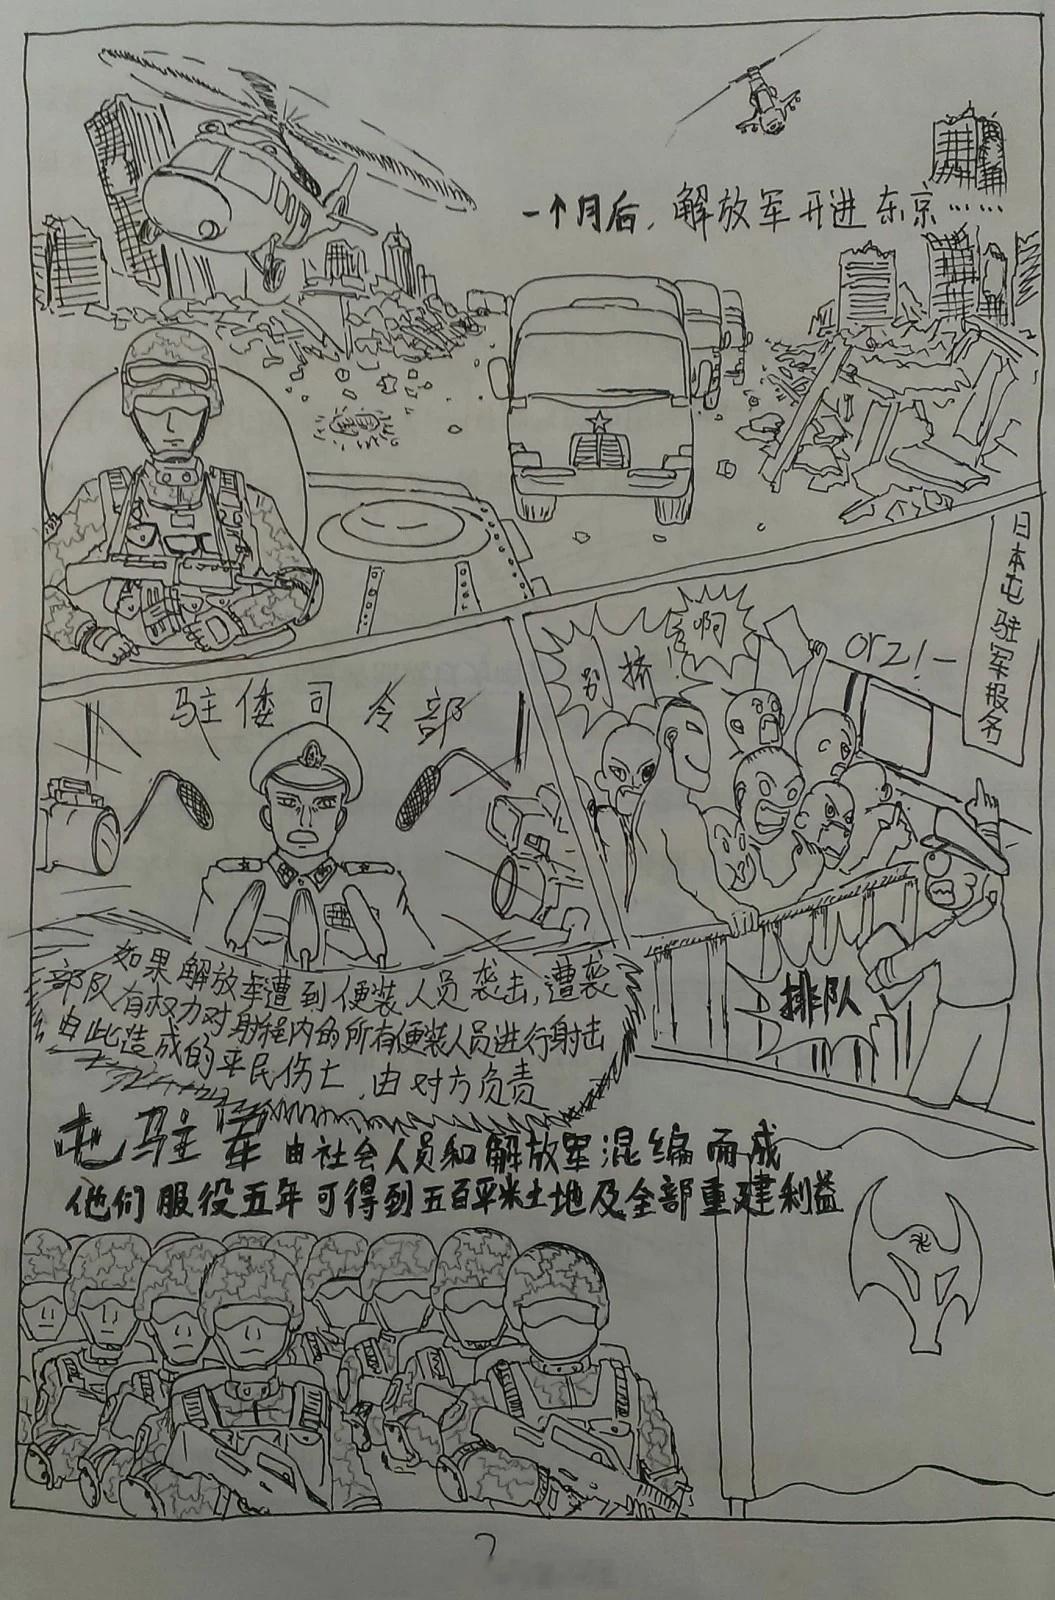 一个月后，解放军开进东京……
日本屯驻军报名
别挤
啊
orz!—
驻倭司令部
排队
如果解放军遭到便装人员袭击，遭袭
部队有权力对射程内的所有便装人员进行射击
由此造成的平民伤亡，由对方负责
屯驻军由社会人员和解放军混编而成
他们服役五年可得到五百平米土地及全部重建利益
7